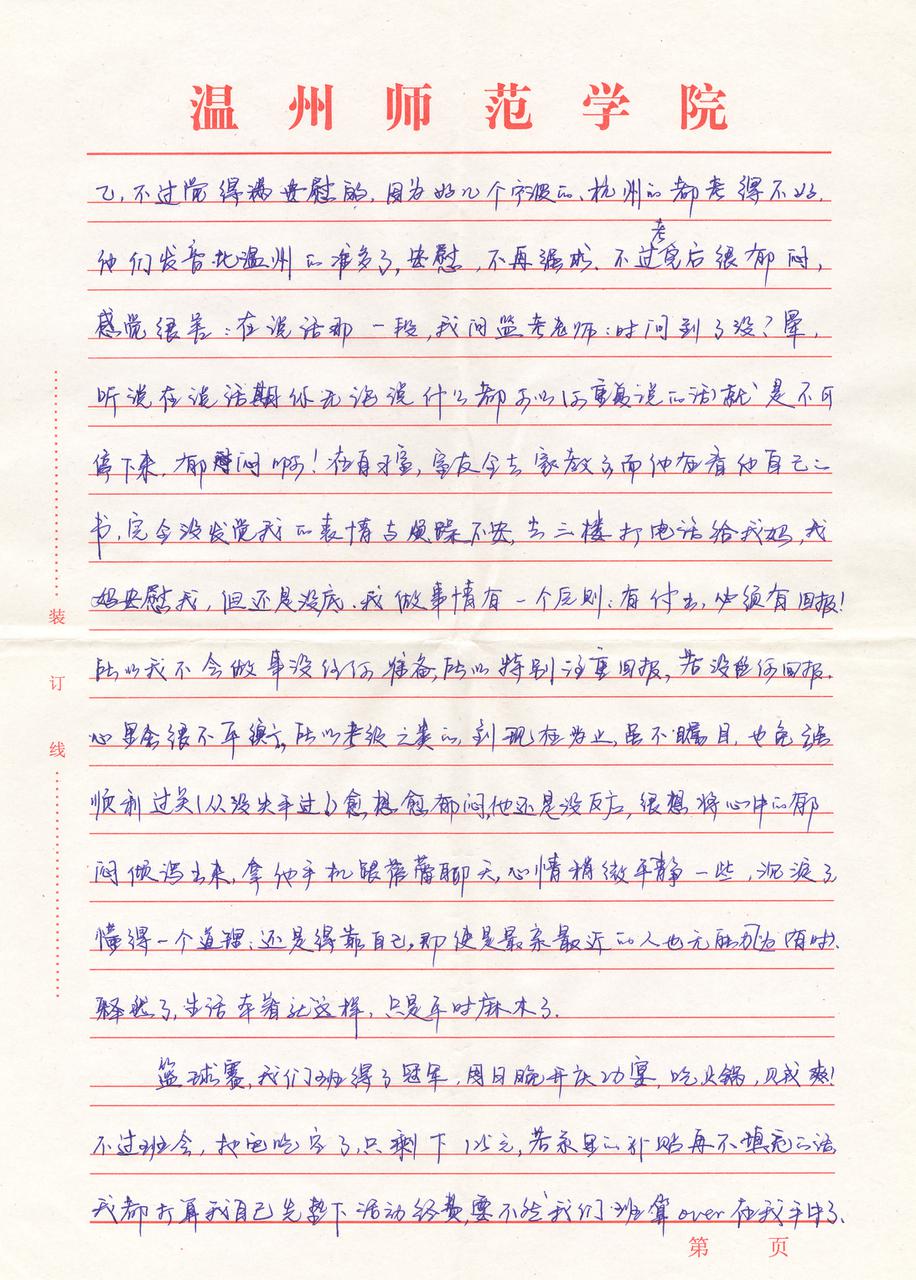 温州师范学院
乙,不过觉得满安慰的,因为好几个宁波的、杭州的都考得不好.
他们发音比温州的准多了,安慰,不再强求.不过考完后很郁闷,
感觉很差:在说话那一段,我问监考老师:时间到了没?晕,
听说在说话期你无论说什么都可以(重复说的话)就是不可
停下来,郁闷啊!在自习室,室友全去家教了而他在看他自己的
书,完全没发觉我的表情与烦躁不安,去三楼打电话给我妈,我
妈安慰我,但还是没底.我做事情有一个原则:有付出,必须有回报!
所以我不会做事没任何准备,所以特别注重回报,若没任何回报.
心里会很不平衡,所以考级之类的,到现在为止,虽不瞩目,也勉强
顺利过关(从没失手过)愈想愈郁闷,他还是没反应,很想将心中的郁
闷倾泻出来,拿他手机跟蕾蕾聊天,心情稍微平静一些,沉淀了
懂得一个道理:还是得靠自己,即使是最亲最近的人也无能为力有时.
释然了,生活本着就这样,只是平时麻木了.
篮球赛,我们班得了冠军,周日晚开庆功宴,吃火锅,贝戈爽!
不过班会,把它吃空了,只剩下125元,若系里的补贴再不填充的话
我都打算我自己先垫下活动经费,要不然我们班算over在我手中了.
装
订
线
第 页